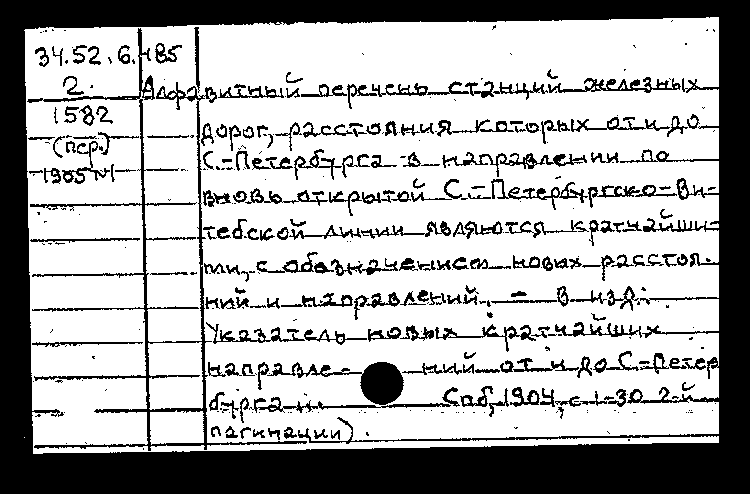 34.52.6.-185
2. Алфавитный перечень станций железных
1582 дорог, расстояния которых от и до
(пер.) С.-Петербурга в направлении по
1905 №1 вновь открытой С.-Петербургско-Ви-
тебской линии являются кратчайши-
ми, с обозначением новых расстоя-
ний и направлений. – В изд.:
Указатель новых кратчайших
направле- ний от и до С-Петер
бурга и. Спб, 1904, с 1-30 2-й
пагинации).